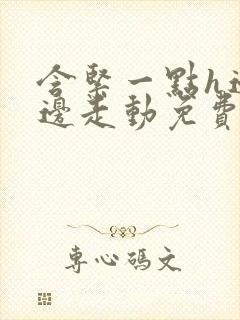 含緊一點h邊
邊走動免費
專心碼文